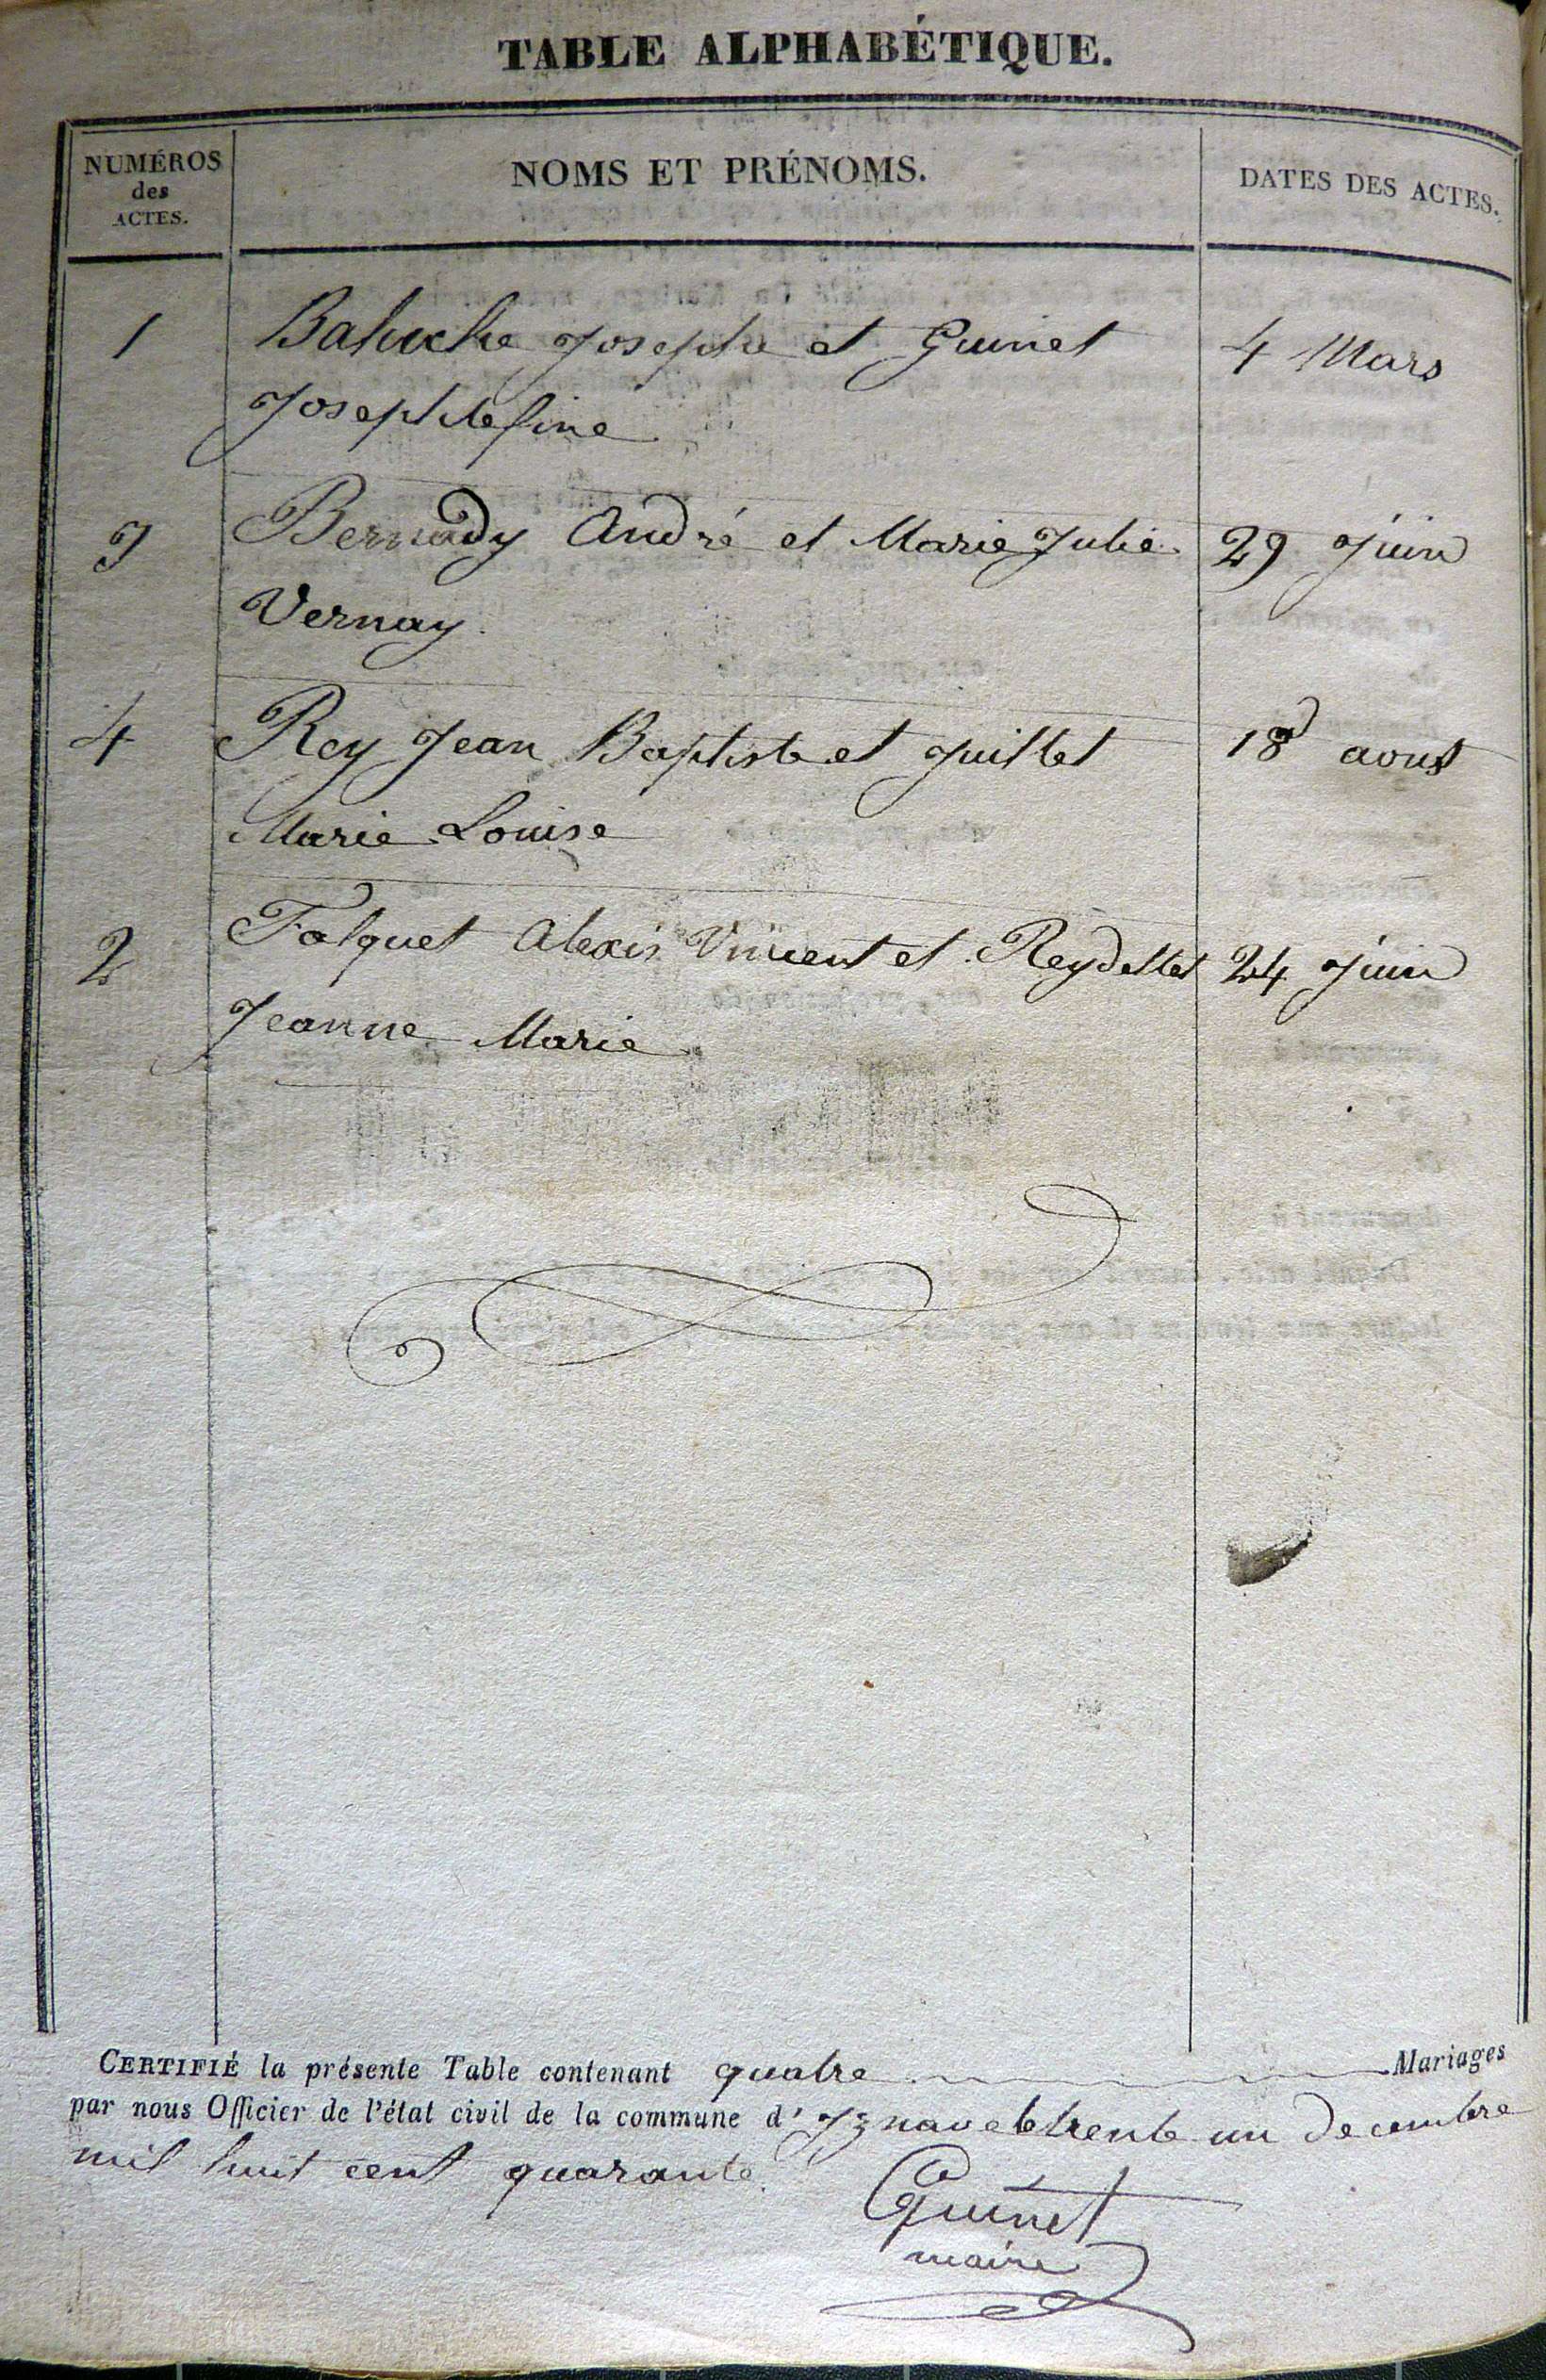 TABLE ALPHABÉTIQUE.
NUMÉROS
des
ACTES.
NOMS ET PRÉNOMS.
DATES DES ACTES.
1 Baluche Josephe et Guinet 4 Mars
Josephtefine
3 Bernady André et Marie Julie 29 Juin
Vernay.
4 Rey Jean Baptiste et Juillet 18 aout
Marie Louise
2 Falquet Alexis Vincent et Reydellet 24 Juin
Jeanne Marie
CERTIFIÉ la présente Table contenant quatre Mariages
par nous Officier de l'état civil de la commune d' Iznave le trente un Decembre
mil huit cent quarante.
Guinet
maire